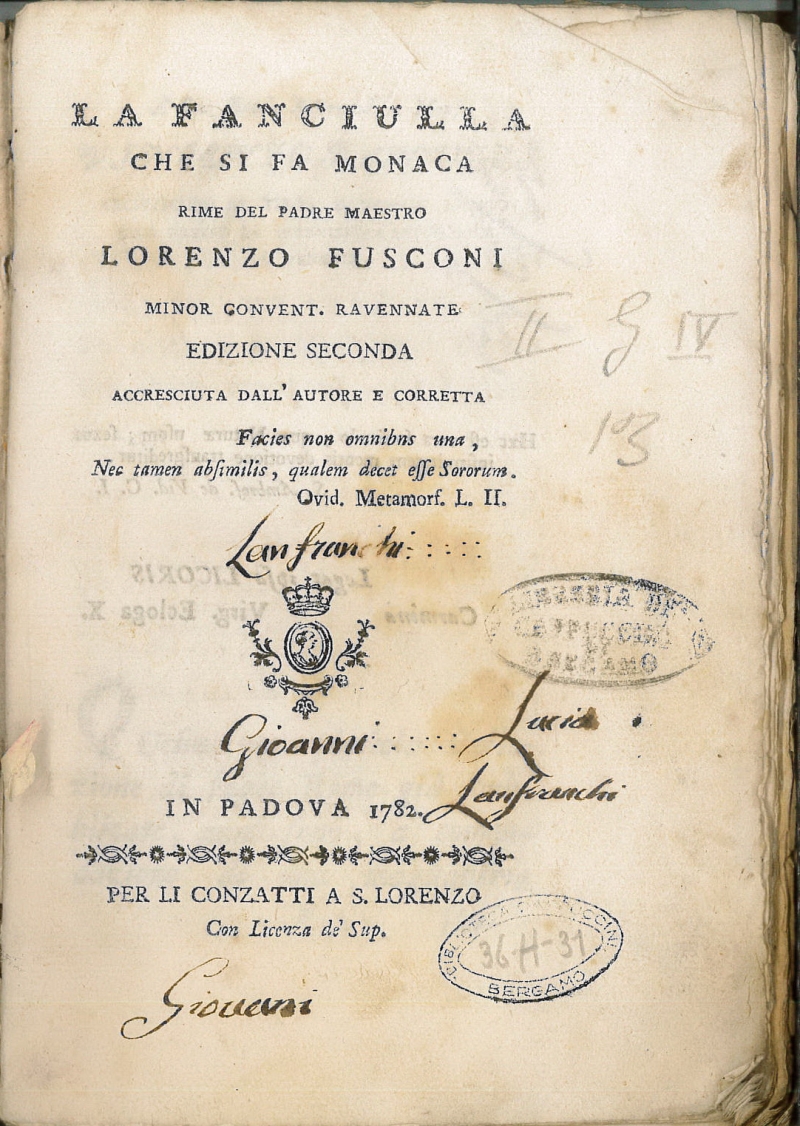 LA FANCIULLA
CHE SI FA MONACA
RIME DEL PADRE MAESTRO
LORENZO FUSCONI
MINOR CONVENT. RAVENNATE
EDIZIONE SECONDA
ACCRESCIUTA DALL' AUTORE E CORRETTA
II G IV
103
Facies non omnibns una,
Nec tamen absimilis, qualem decet esse Sororum.
Ovid. Metamorf. L. II.
Lanfranchi
LIBRERIA DE'
CAPPUCCINI
DI
BERGAMO
Gioanni
Lucia
Lanfranchi
IN PADOVA 1782.
PER LI CONZATTI A S. LORENZO
Con Licenza de' Sup.
BIBLIOTECA CAPPUCCINI
36-H-31
BERGAMO
Giovani